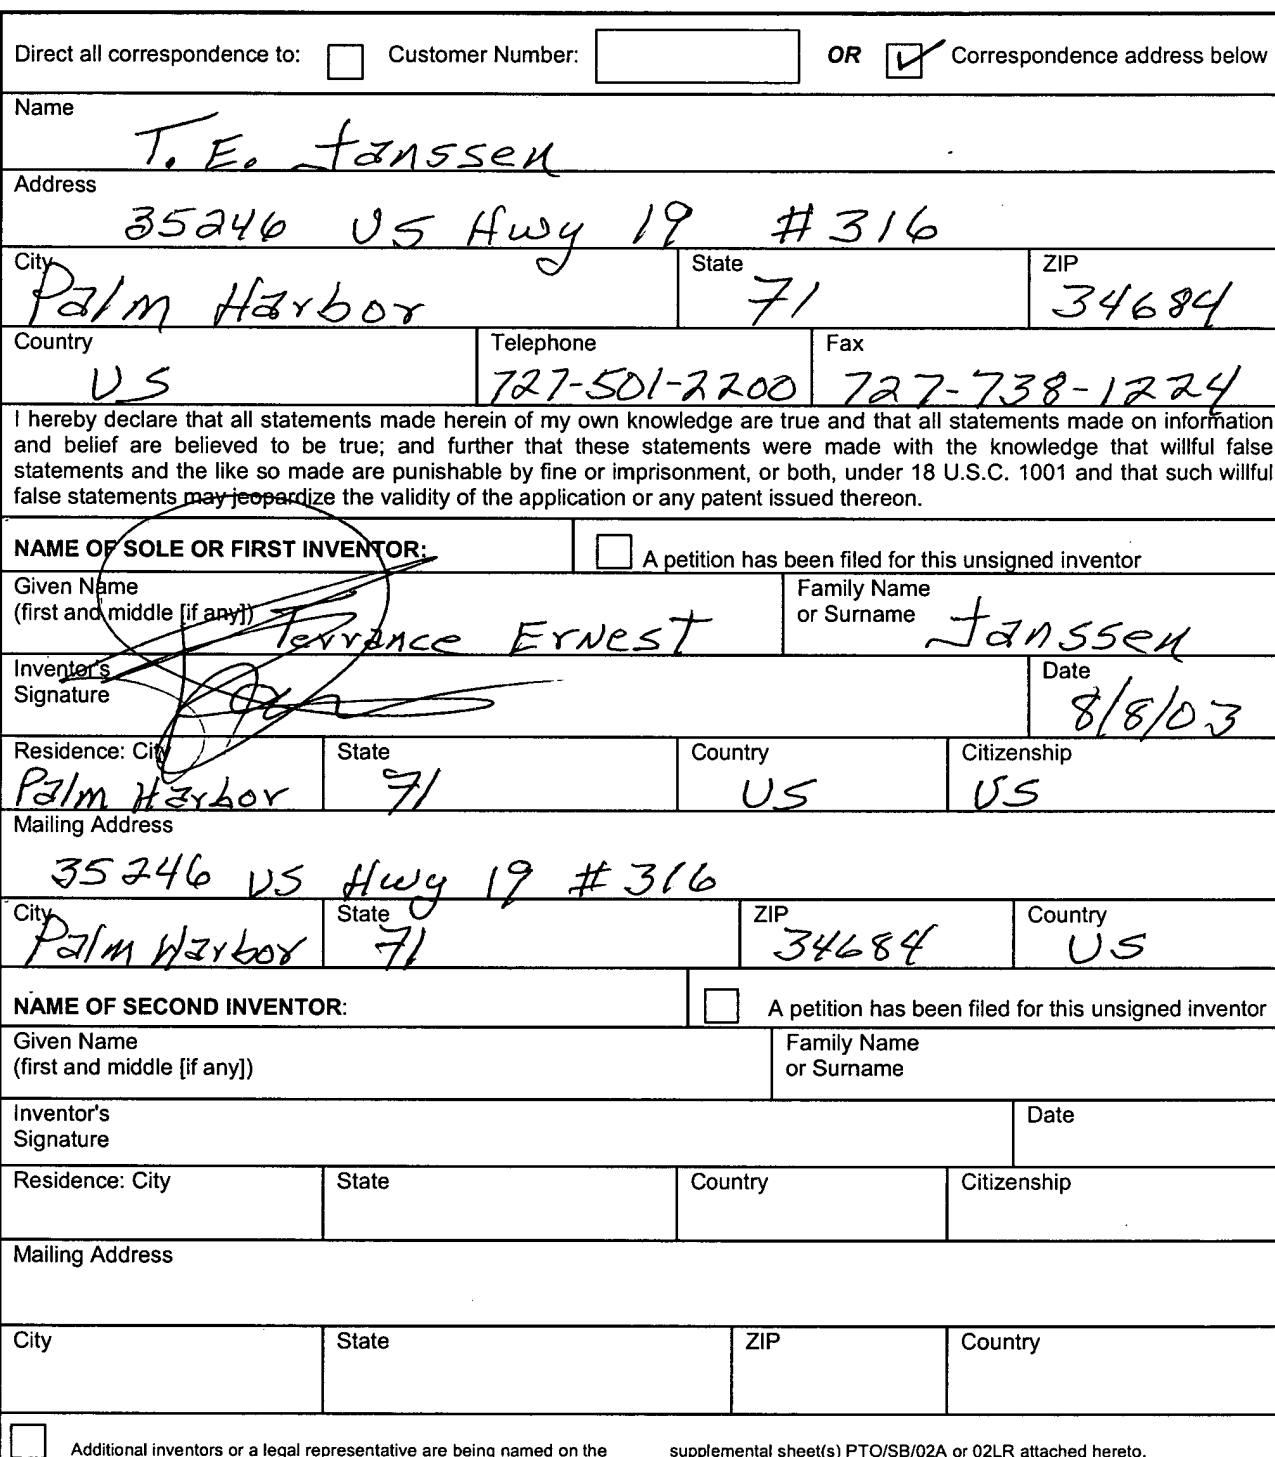 Direct all correspondence to: Customer Number: OR Correspondence address below
Name
T. E. Janssen
Address
35246 US Hwy 19 #316
City State ZIP
Palm Harbor Fl 34684
Country Telephone Fax
US 727-501-2200 727-738-1224
I hereby declare that all statements made herein of my own knowledge are true and that all statements made on information
and belief are believed to be true; and further that these statements were made with the knowledge that willful false
statements and the like so made are punishable by fine or imprisonment, or both, under 18 U.S.C. 1001 and that such willful
false statements may jeopardize the validity of the application or any patent issued thereon.
NAME OF SOLE OR FIRST INVENTOR: A petition has been filed for this unsigned inventor
Given Name Family Name
(first and middle [if any]) Terrance Ernest or Surname Janssen
Inventor's Date
Signature 8/8/03
Residence: City State Country Citizenship
Palm Harbor Fl US US
Mailing Address
35246 US Hwy 19 #316
City State ZIP Country
Palm Harbor Fl 34684 US
NAME OF SECOND INVENTOR: A petition has been filed for this unsigned inventor
Given Name Family Name
(first and middle [if any]) or Surname
Inventor's Date
Signature
Residence: City State Country Citizenship
Mailing Address
City State ZIP Country
Additional inventors or a legal representative are being named on the supplemental sheet(s) PTO/SB/02A or 02LR attached hereto.